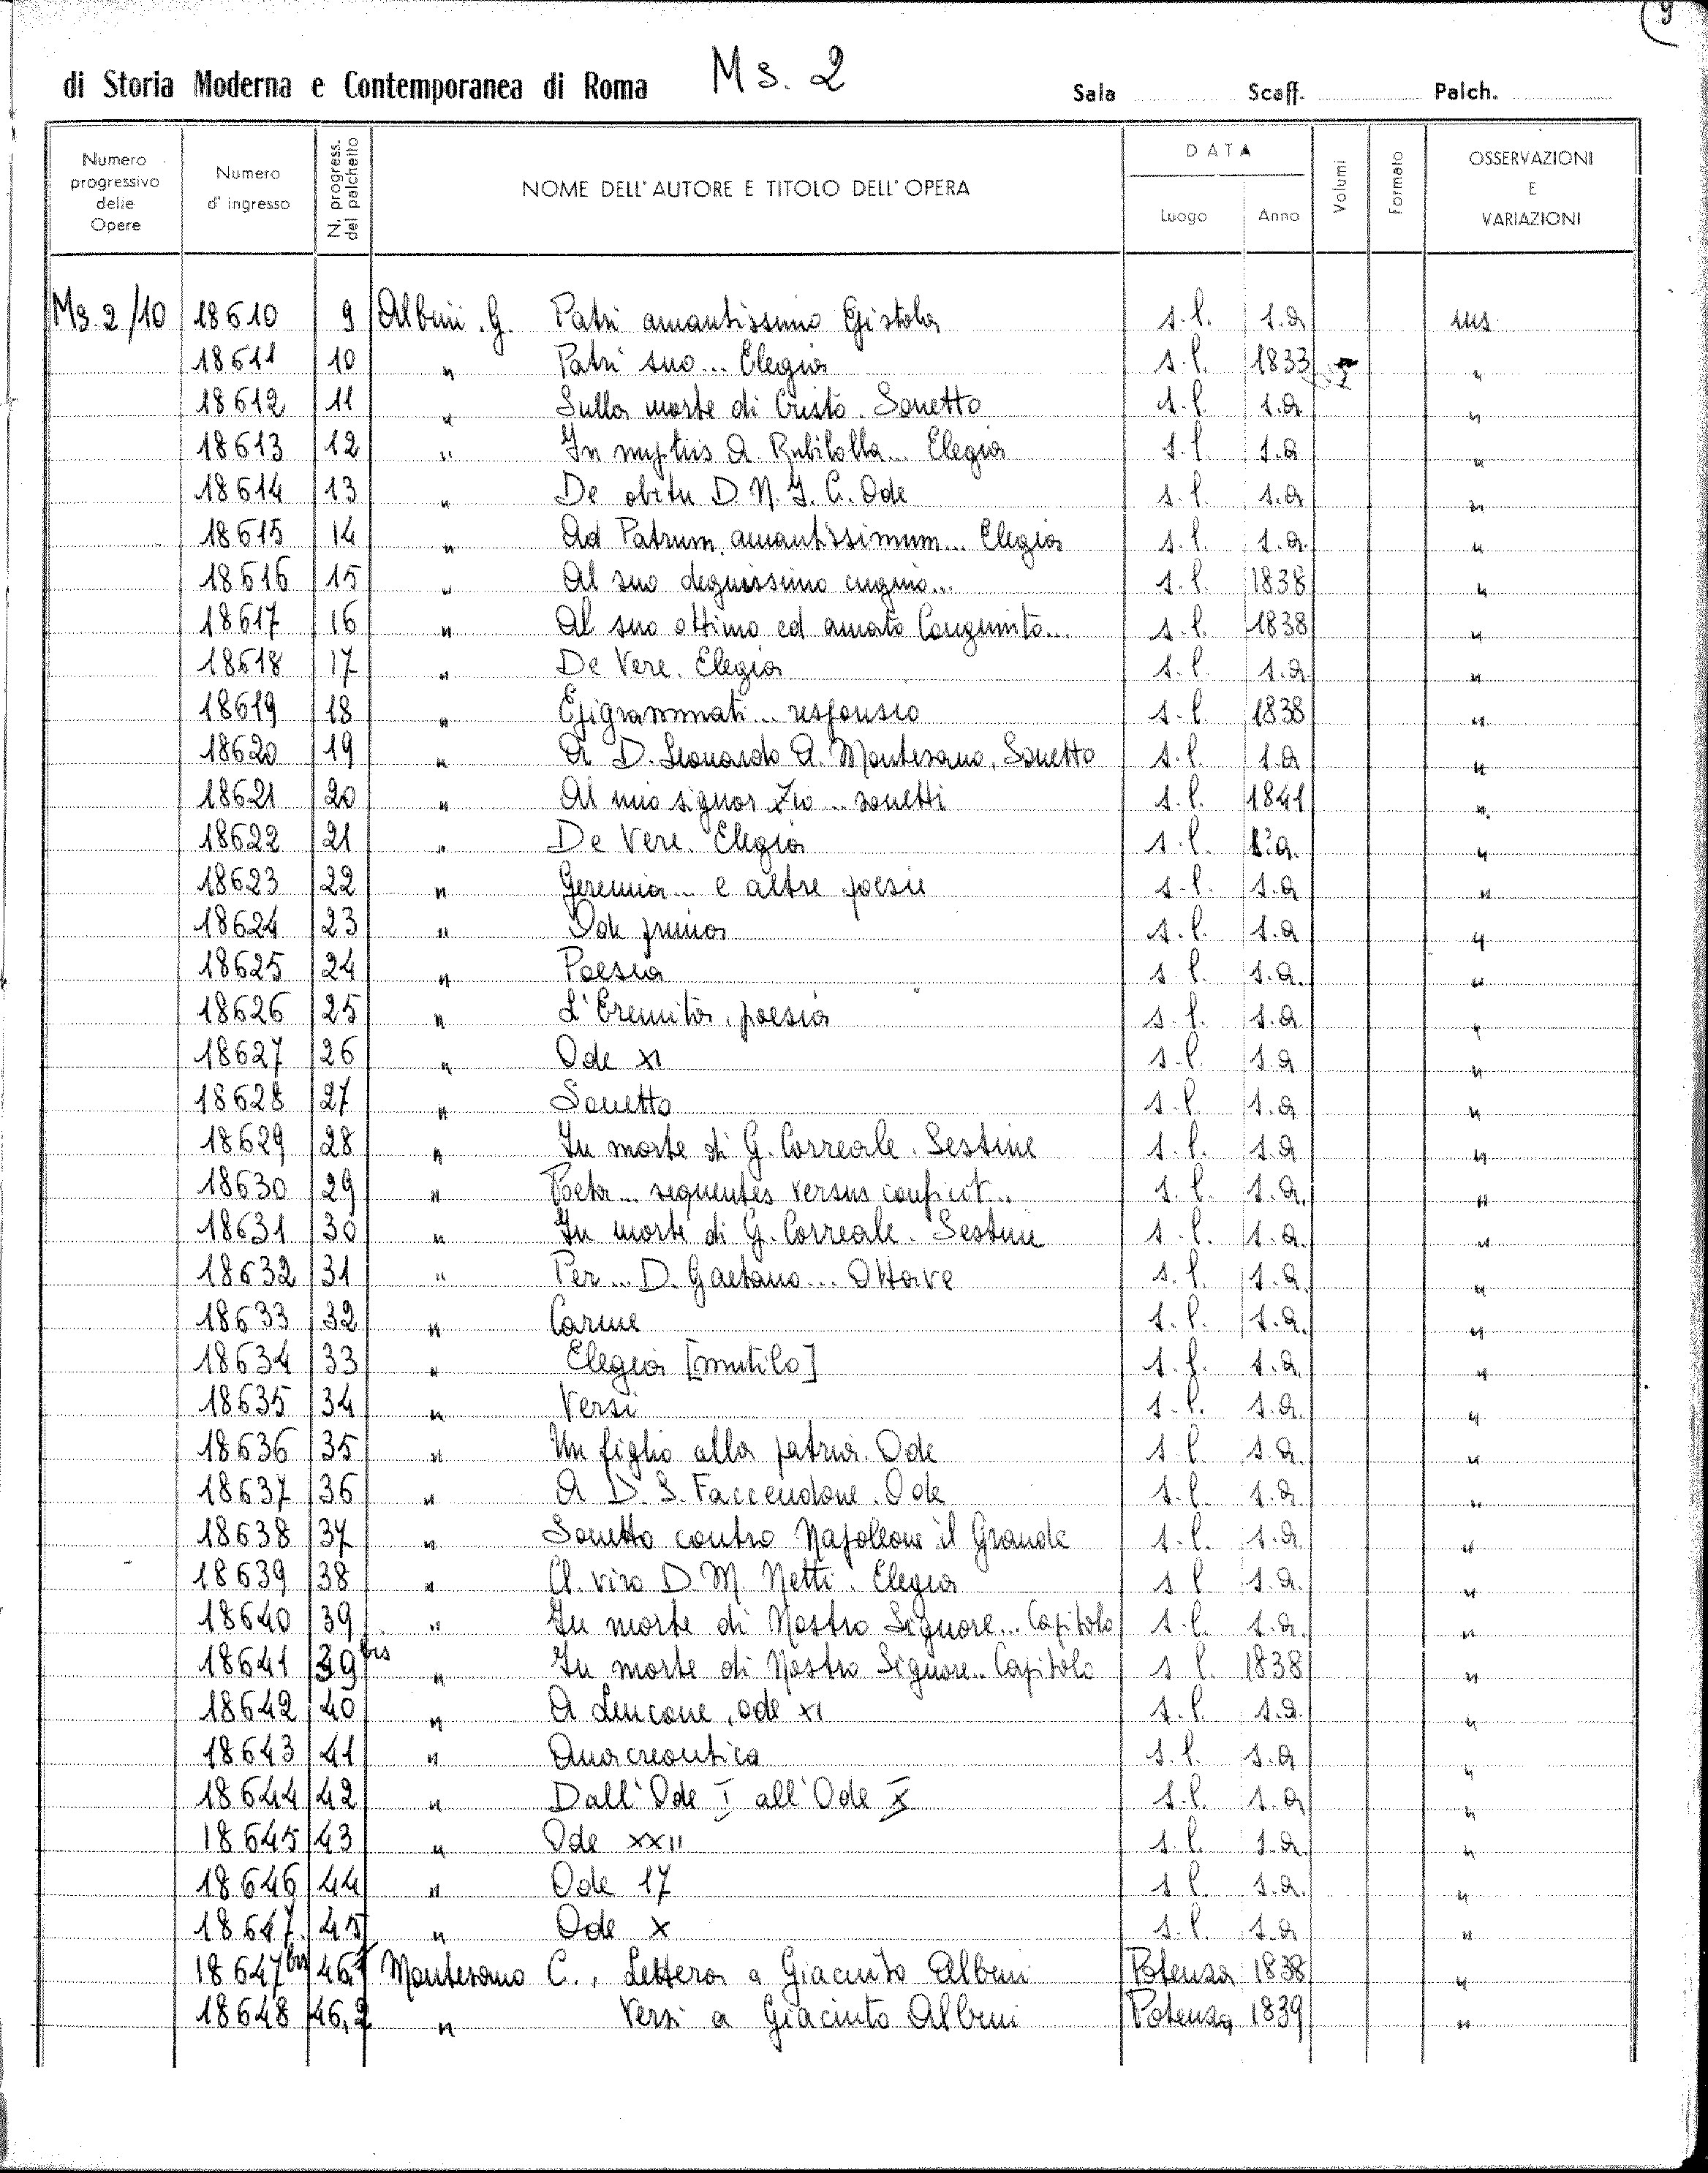 9
di Storia Moderna e Contemporanea di Roma Ms. 2 Sala Scaff. Palch.
Numero progressivo delle Opere Numero d'ingresso N. progress. del palchetto NOME DELL'AUTORE E TITOLO DELL'OPERA DATA Luogo Anno Volumi Formato OSSERVAZIONI E VARIAZIONI
Ms. 2/10 18610 9 Albini G. Patri amantissimo Epistola s.l. s.a ms.
18611 10 " Patri suo... Elegia s.l. 1833 "
18612 11 " Sulla morte di Cristo. Sonetto s.l. s.a "
18613 12 " In nuptiis A. Rubilotta... Elegia s.l. s.a "
18614 13 " De obitu D. N. J. C. Ode s.l. s.a "
18615 14 " Ad Patrum amantissimum... Elegia s.l. s.a. "
18616 15 " Al suo degnissimo cugino... s.l. 1838 "
18617 16 " Al suo ottimo ed amato Congiunto... s.l. 1838 "
18618 17 " De Vere. Elegia s.l. s.a "
18619 18 " Epigrammati... responsio s.l. 1838 "
18620 19 " A D. Leonardo A. Montesano, Sonetto s.l. s.a "
18621 20 " Al mio signor Zio... sonetti s.l. 1841 "
18622 21 " De Vere. Elegia s.l. s.a. "
18623 22 " Geremia... e altre poesie s.l. s.a "
18624 23 " Ode prima s.l. s.a "
18625 24 " Poesia s l. s.a. "
18626 25 " L'Eremita, poesia s.l. s.a "
18627 26 " Ode XI s.l. s.a "
18628 27 " Sonetto s.l. s.a "
18629 28 " In morte di G. Correale. Sestine s.l. s.a "
18630 29 " Poeta... sequentes versus conficit... s.l. s.a. "
18631 30 " In morte di G. Correale. Sestine s.l. s.a. "
18632 31 " Per... D. Gaetano... Ottave s.l. s.a. "
18633 32 " Carme s.l. s.a. "
18634 33 " Elegia [mutilo] s.l. s.a. "
18635 34 " Versi s.l. s.a. "
18636 35 " Un figlio alla patria. Ode s l. s.a. "
18637 36 " A D. S. Faccendone. Ode s.l. s.a. "
18638 37 " Sonetto contro Napoleone il Grande s.l. s.a "
18639 38 " Cl. viro D. M. Netti. Elegia s l s.a. "
18640 39 " In morte di Nostro Signore... Capitolo s.l. s.a. "
18641 39 bis " In morte di Nostro Signore... Capitolo s l. 1838 "
18642 40 " A Leucone, ode XI s.l. s.a. "
18643 41 " Anacreontica s.l. s.a "
18644 42 " Dall'Ode I all'Ode X s.l. s.a "
18645 43 " Ode XXII s.l. s.a "
18646 44 " Ode 17 s l. s.a. "
18647 45 " Ode X s.l. s.a "
18647 bis 46,1 Montesano C., Lettera a Giacinto Albini Potenza 1838 "
18648 46,2 " Versi a Giacinto Albini Potenza 1839 "